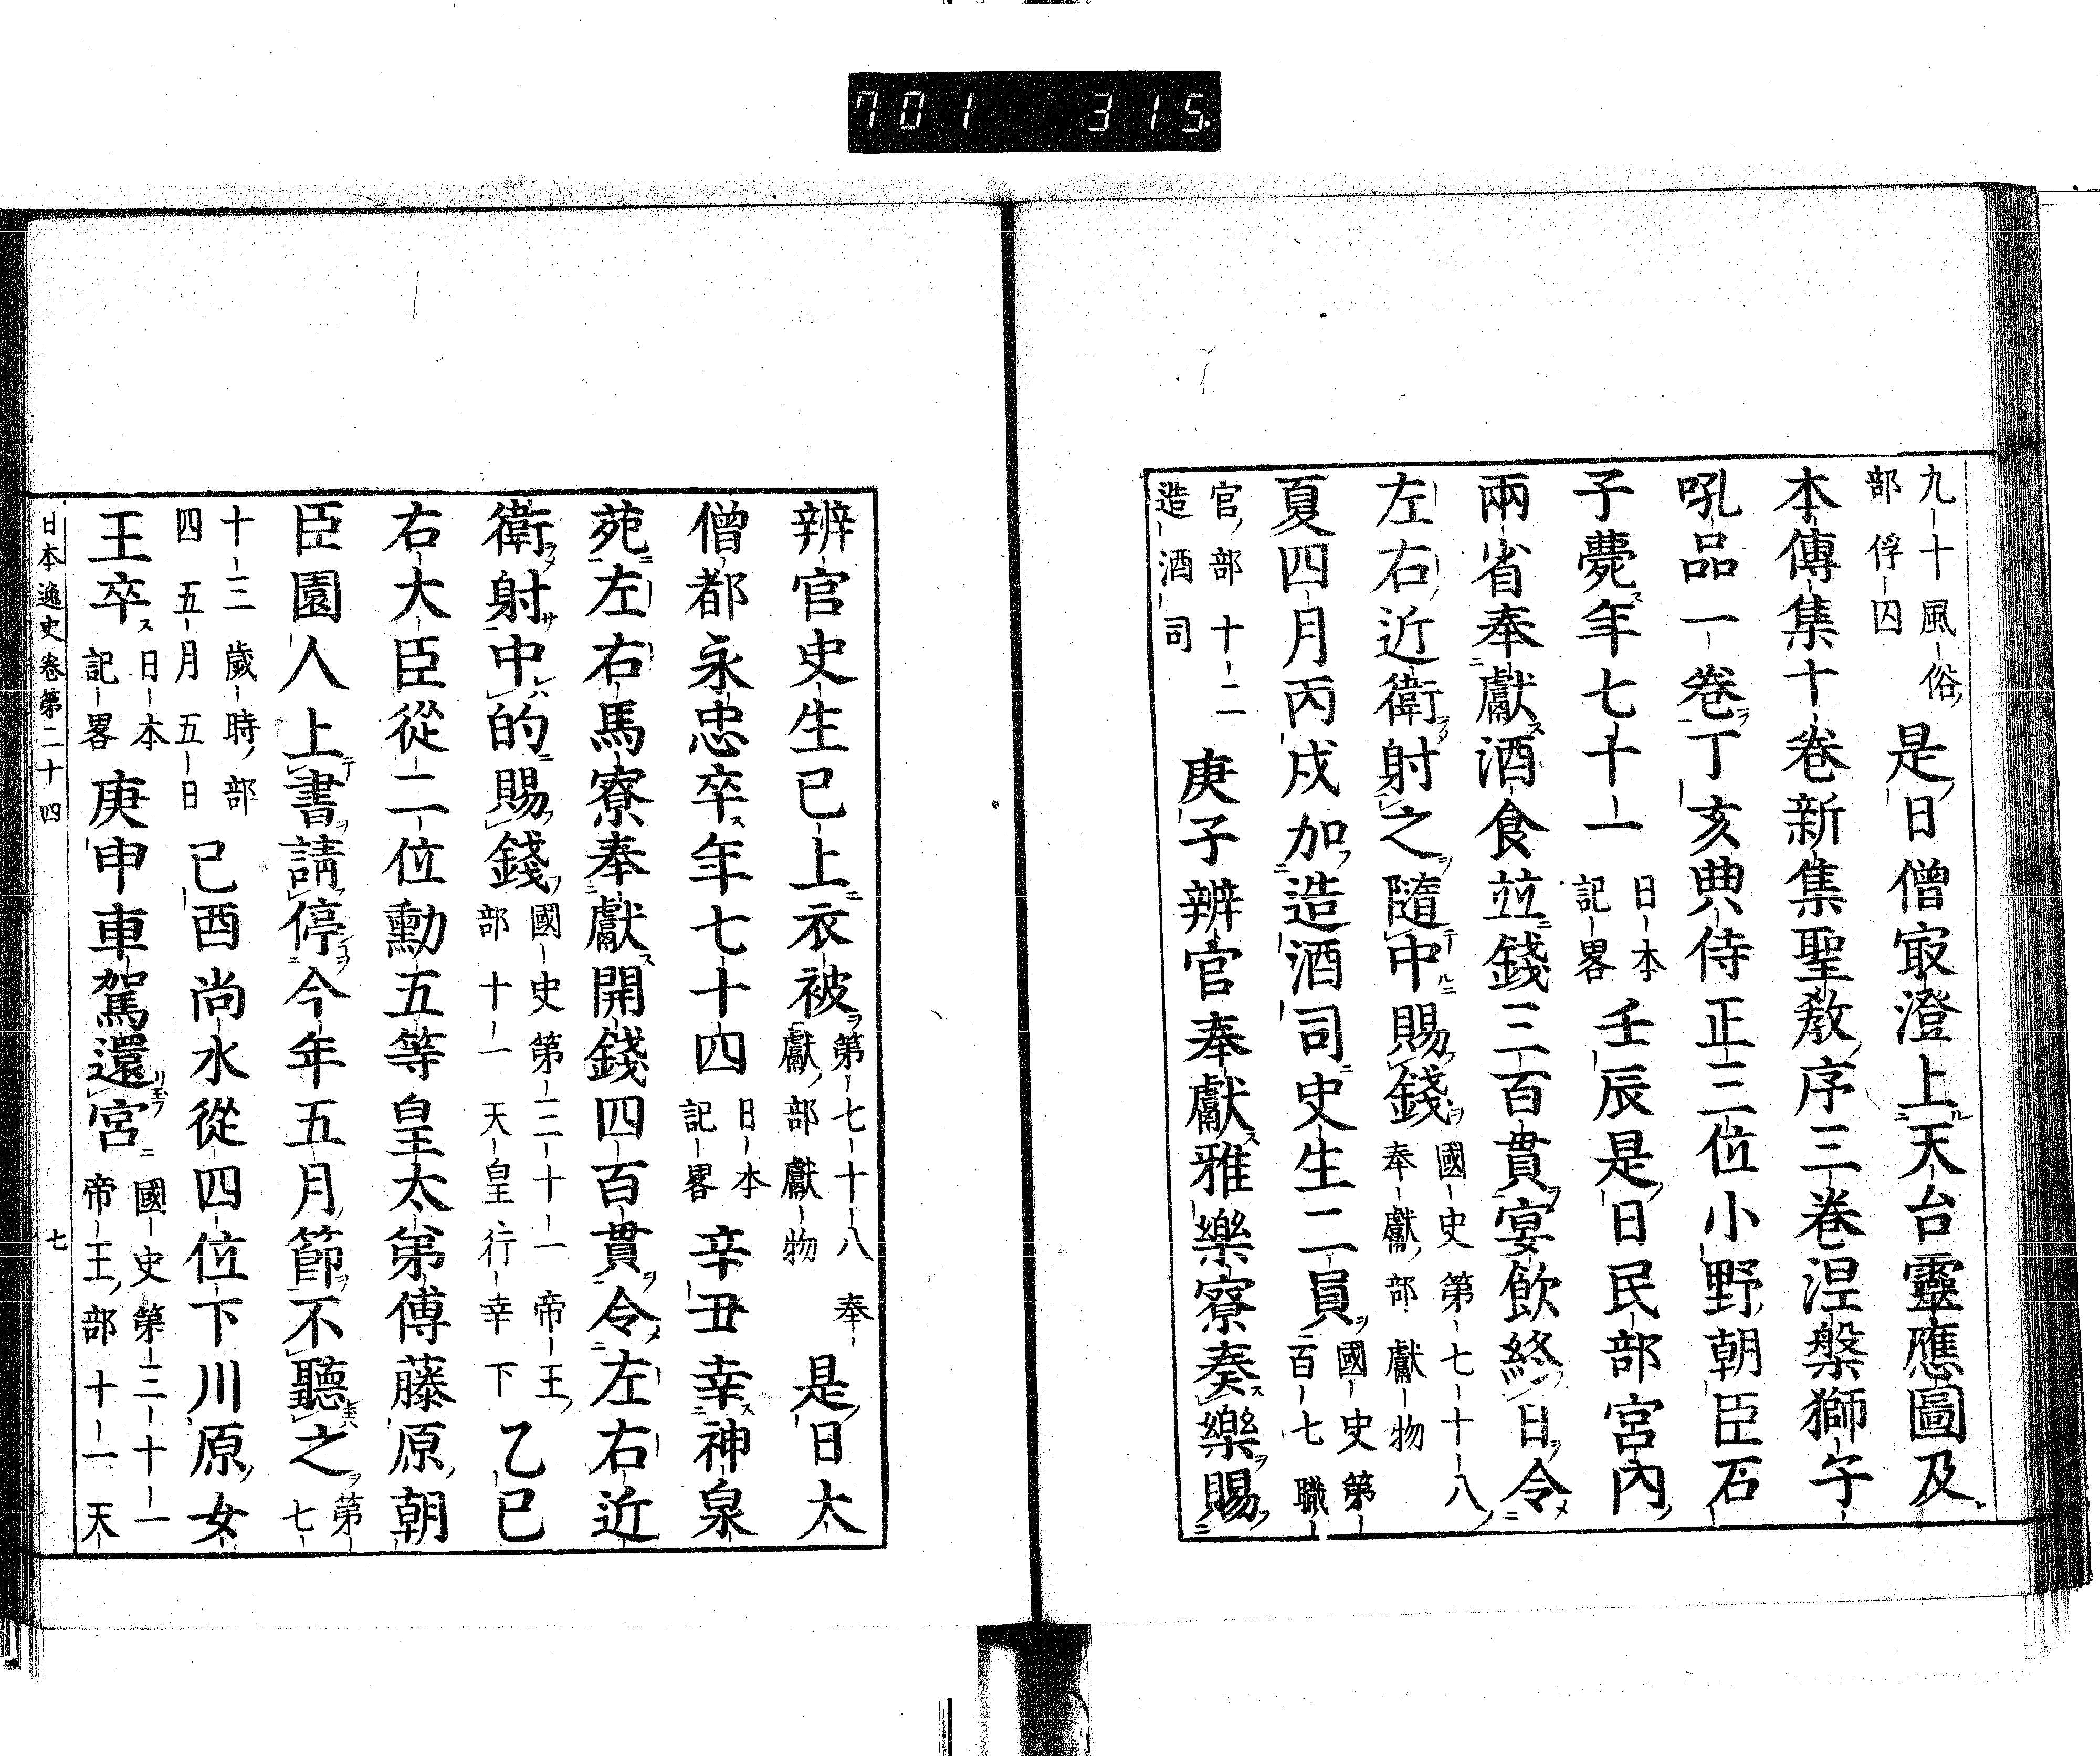 701 315
九十風俗
部俘囚
是日僧㝡澄上天台靈應圖及
本傳集十卷新集聖教序三卷涅槃獅子
吼品一卷丁亥典侍正三位小野朝臣石
子薨年七十一
日本
記畧
壬辰是日民部宮內
兩省奉獻酒食並錢三百貫宴飲終日令
左右近衛射之隨中賜錢
國史第七十八
奉獻部獻物
夏四月丙戍加造酒司史生二員
國史第
百七職
官部十二
造酒司
庚子辨官奉獻雅樂寮奏樂賜
辨官史生已上衣被
第七十八奉
獻部獻物
是日太
僧都永忠卒年七十四
日本
記畧
辛丑幸神泉
苑左右馬寮奉獻開錢四百貫令左右近
衛射中的賜錢
國史第三十一帝王
部十一天皇行幸下
乙巳
右大臣從二位勳五等皇太弟傅藤原朝
臣園人上書請停今年五月節不聽之
第
七
十三歲時部
四五月五日
己酉尚水從四位下川原女
王卒
日本
記畧
庚申車駕還宮
國史第三十一
帝王部十一天
日本逸史卷第二十四 七